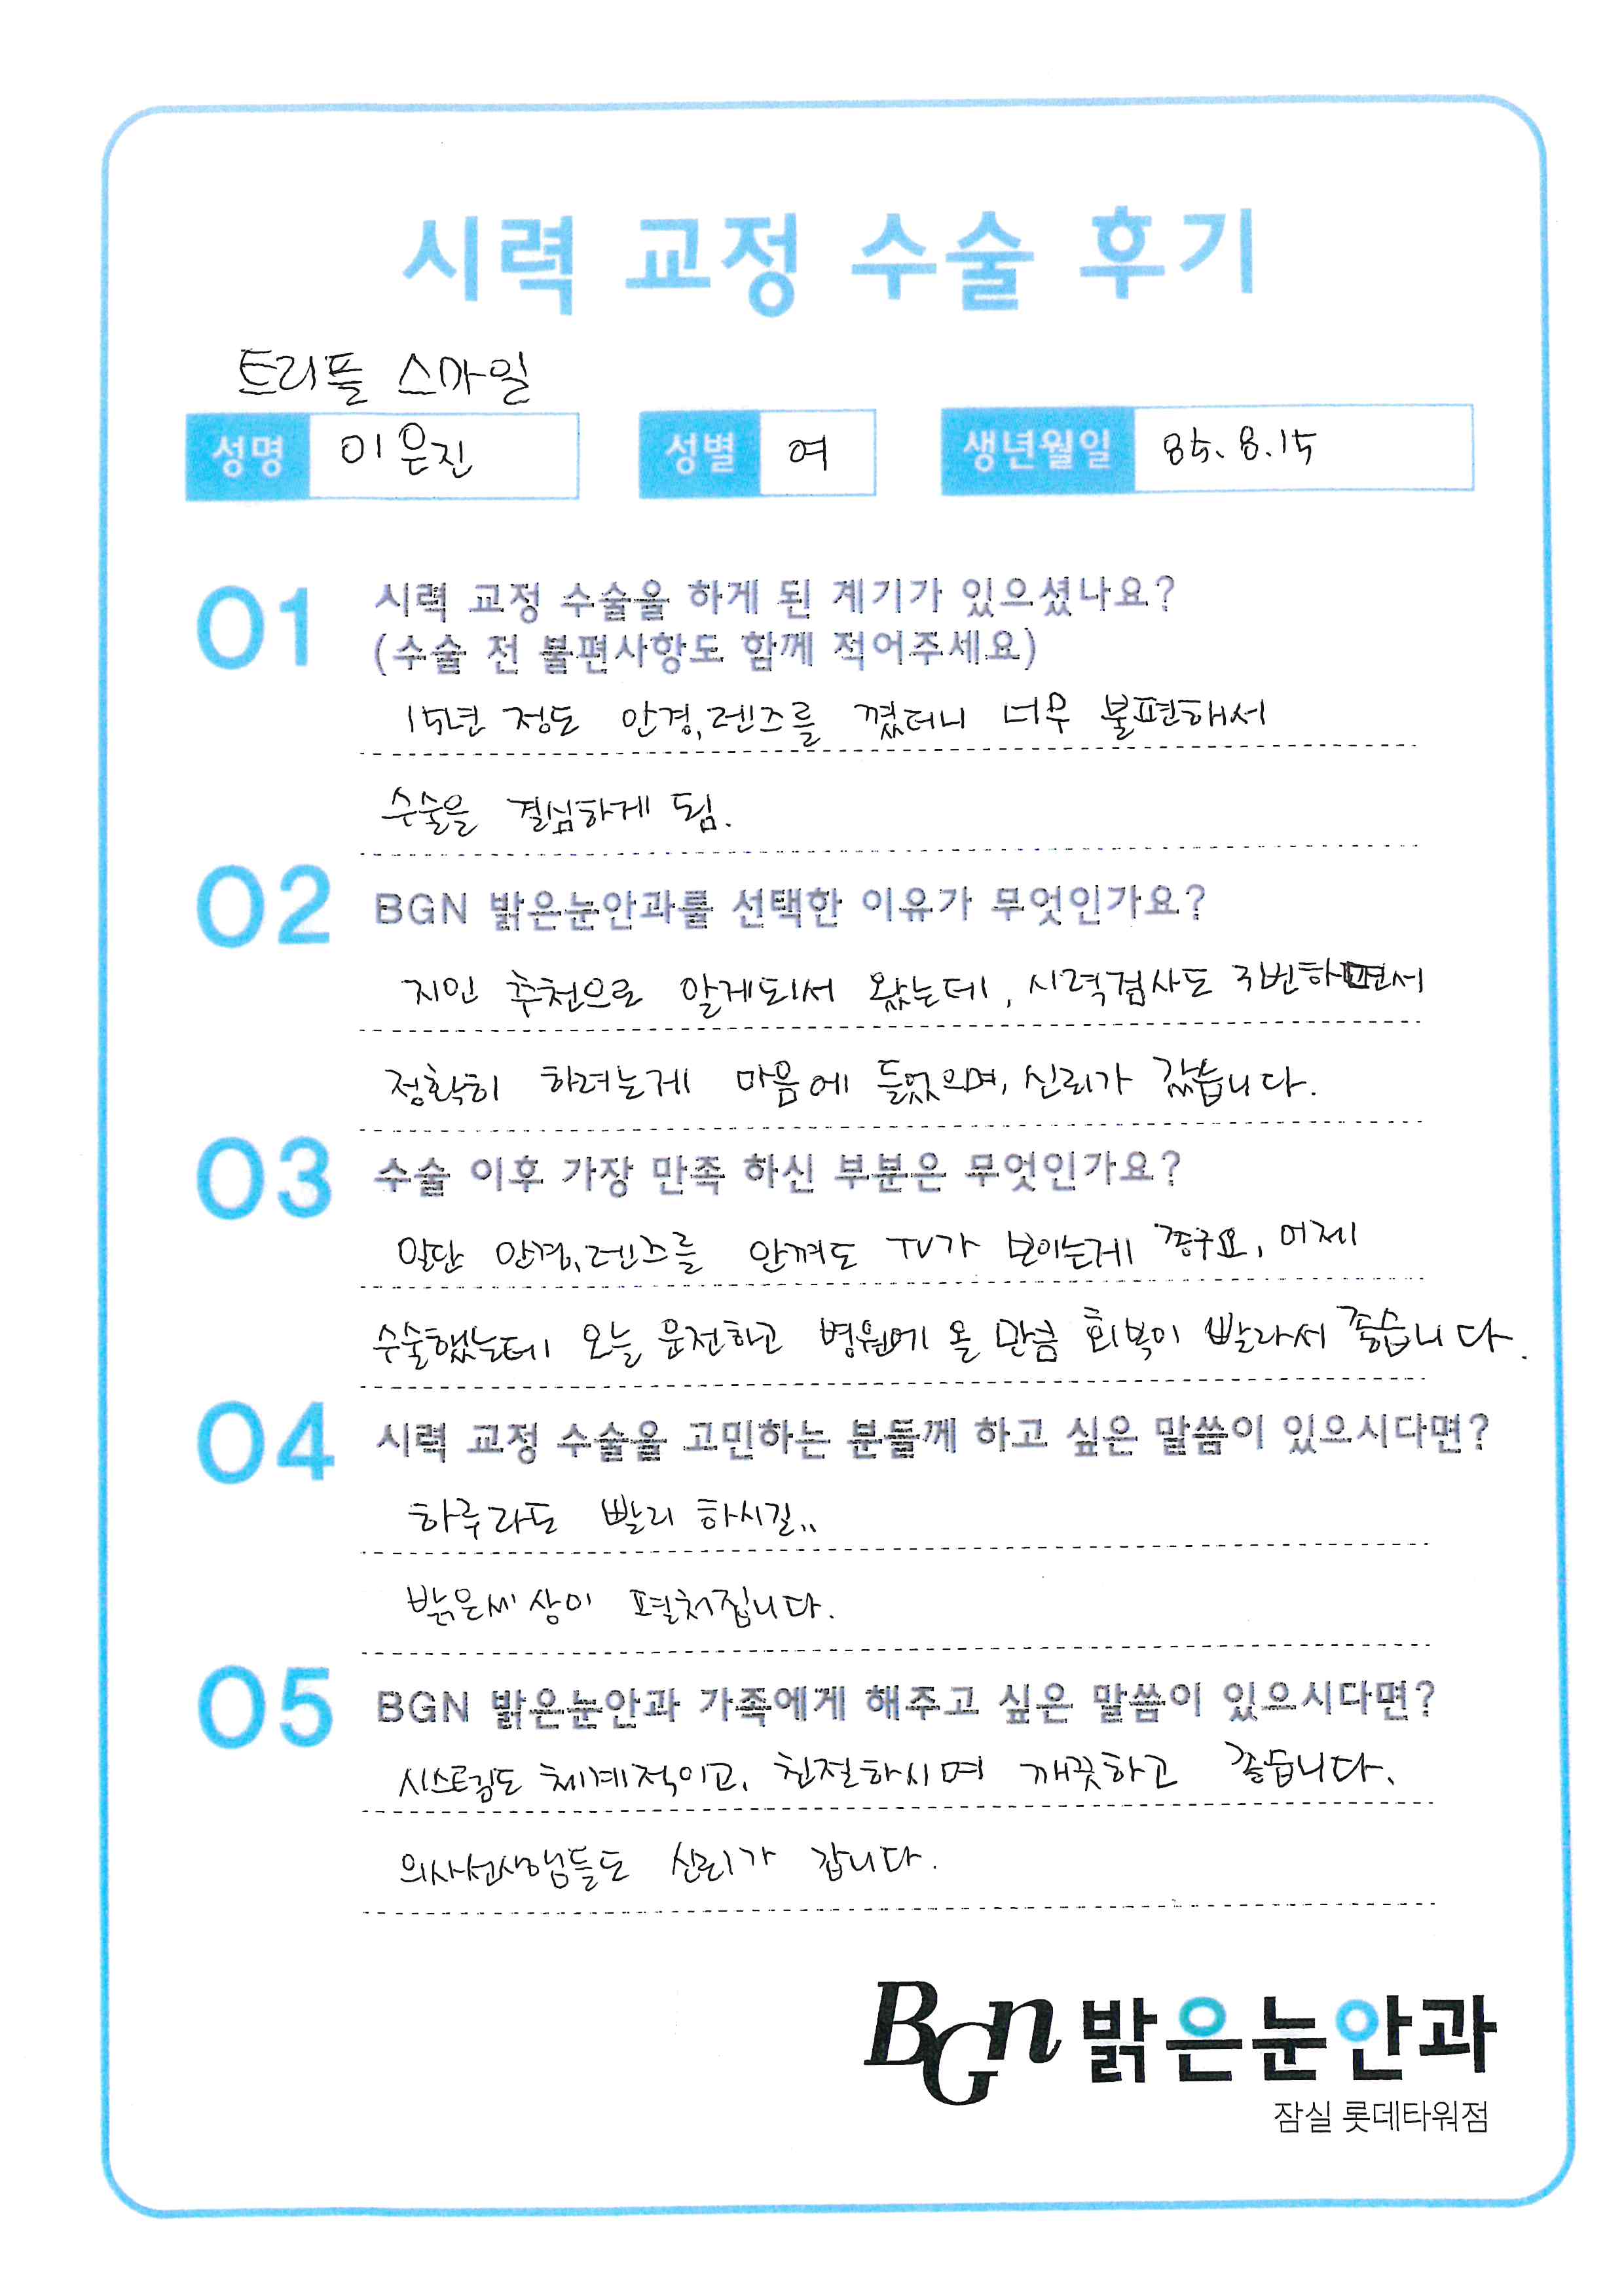 시력 교정 수술 후기
트리플 스마일
성명 이은진 성별 여 생년월일 85.8.15
01 시력 교정 수술을 하게 된 계기가 있으셨나요?
(수술 전 불편사항도 함께 적어주세요)
15년 정도 안경,렌즈를 꼈더니 너무 불편해서
수술을 결심하게 됨.
02 BGN 밝은눈안과를 선택한 이유가 무엇인가요?
지인 추천으로 알게되서 왔는데, 시력검사도 3번하면서
정확히 하려는게 마음에 들었으며, 신뢰가 갔습니다.
03 수술 이후 가장 만족 하신 부분은 무엇인가요?
일단 안경,렌즈를 안껴도 TV가 보이는게 좋구요, 어제
수술했는데 오늘 운전하고 병원에 올 만큼 회복이 빨라서 좋습니다.
04 시력 교정 수술을 고민하는 분들께 하고 싶은 말씀이 있으시다면?
하루라도 빨리 하시길..
밝은세상이 펼쳐집니다.
05 BGN 밝은눈안과 가족에게 해주고 싶은 말씀이 있으시다면?
시스템도 체계적이고, 친절하시며 깨끗하고 좋습니다.
의사선생님들도 신뢰가 갑니다.
BGn 밝은눈안과
잠실 롯데타워점